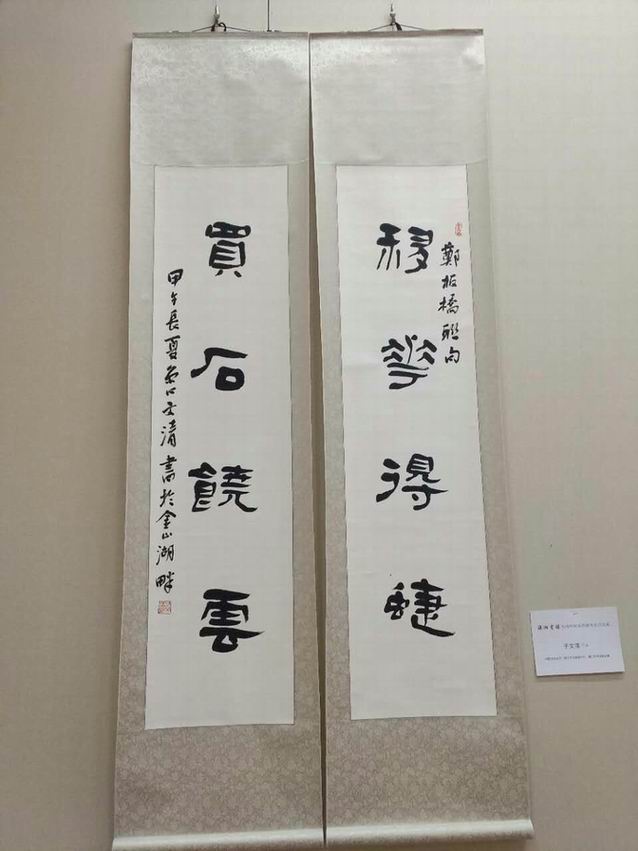 鄭板橋聯句
移華得蜨
買石饒雲
甲午長夏營口文清書於金山湖畔
于文清